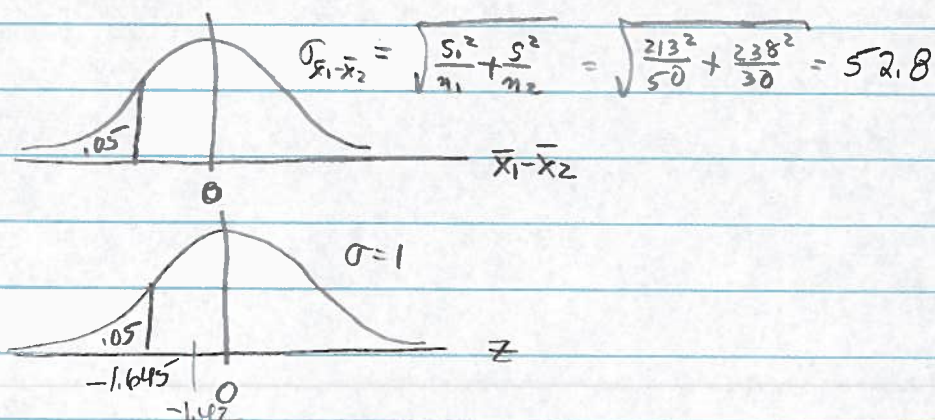 σx̄₁-x̄₂ = √(S₁²/n₁ + S²/n₂) = √(213²/50 + 238²/30) = 52.8
.05
x̄₁-x̄₂
0
σ=1
.05
z
-1.645
0
-1.42